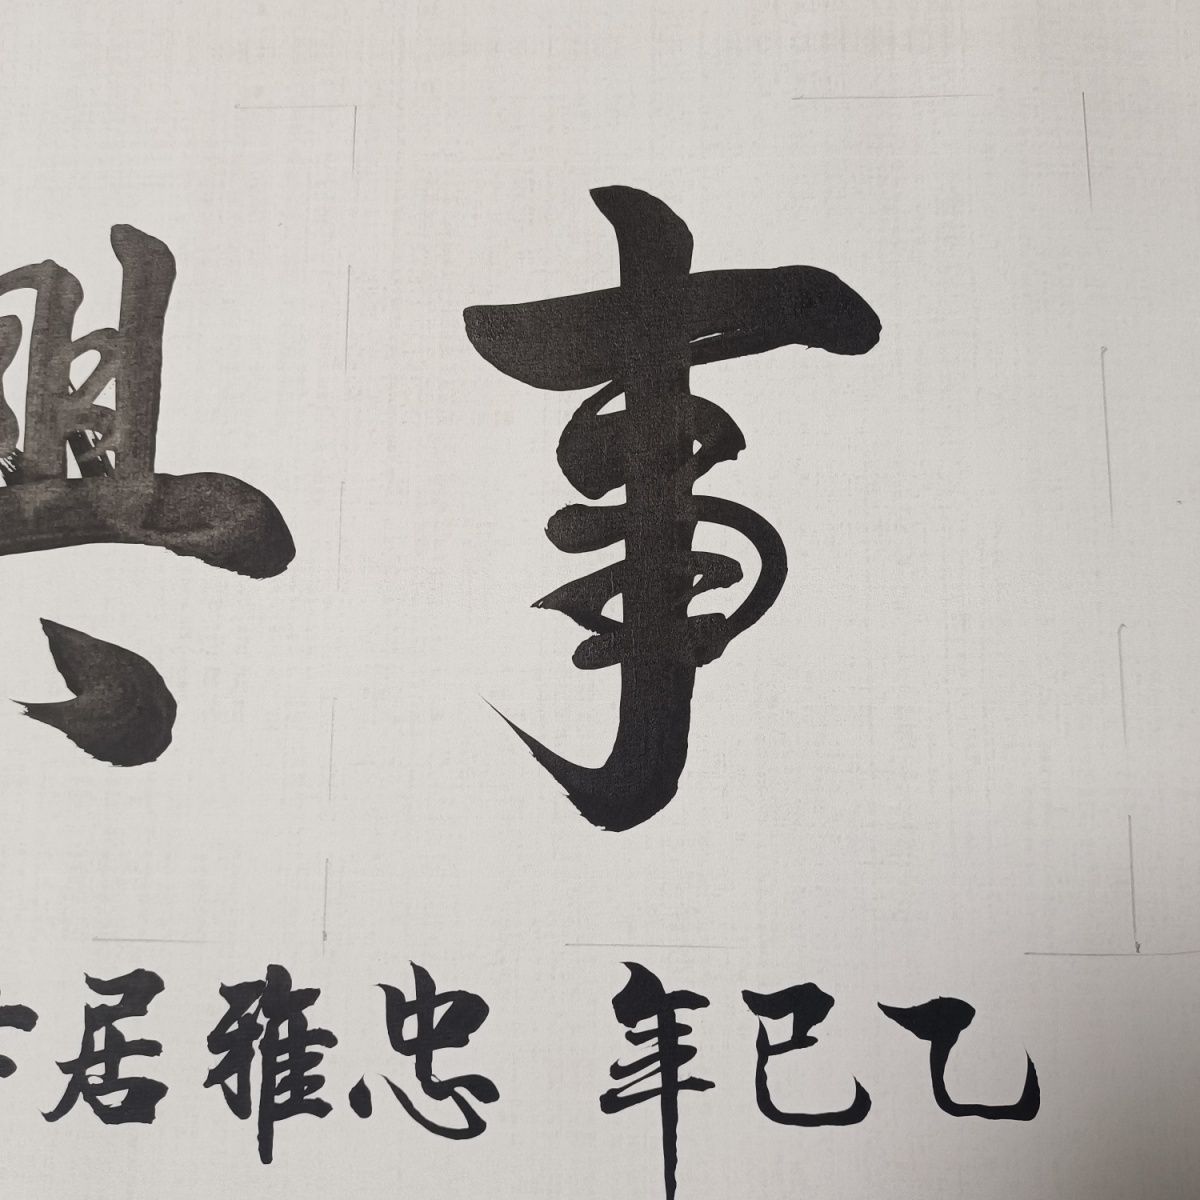 事興
乙巳年 忠雅居